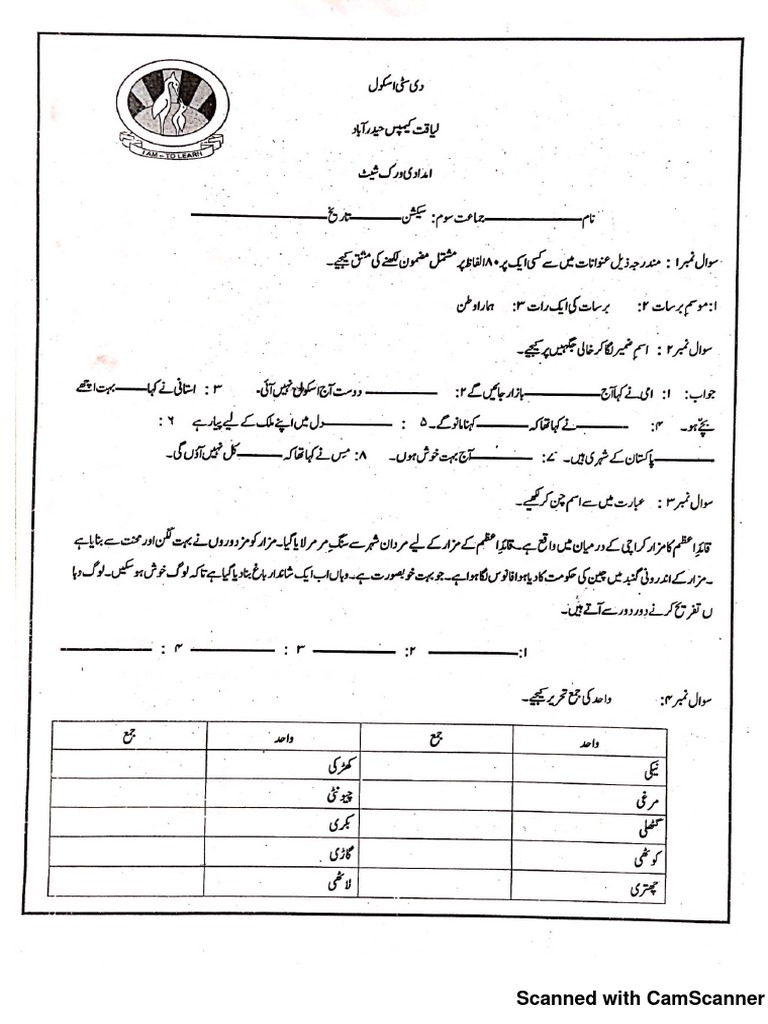 دی سٹی اسکول
لیاقت کیمپس حیدرآباد
I AM – TO LEARN
امدادی ورک شیٹ
نام ــــــــــــــ جماعت سوم: سیکشن ــــــــــــــ تاریخ ــــــــــــــ
سوال نمبر ۱ : مندرجہ ذیل عنوانات میں سے کسی ایک پر ۸۰ الفاظ پر مشتمل مضمون لکھنے کی مشق کیجیے۔
۱: موسمِ برسات ۲: برسات کی ایک رات ۳: ہمارا وطن
سوال نمبر ۲ : اسم ضمیر لگا کر خالی جگہیں پر کیجیے۔
جواب: ۱: امی نے کہا آج ــــــــــــــ بازار جائیں گے ۲: ــــــــــــــ دوست آج اسکول نہیں آئی۔ ۳: استانی نے کہا ــــــــــــــ بہت اچھے
بچّے ہو۔ ۴: ــــــــــــــ نے کہا تھا کہ ــــــــــــــ کہنا مانو گے۔ ۵ : ــــــــــــــ دل میں اپنے ملک کے لیے پیار ہے ۶ :
ــــــــــــــ پاکستان کے شہری ہیں۔ ۷: ــــــــــــــ آج بہت خوش ہوں۔ ۸: مِس نے کہا تھا کہ ــــــــــــــ کل نہیں آؤں گی۔
سوال نمبر ۳ : عبارت میں سے اسم چن کر لکھیے۔
قائدِ اعظم کا مزار کراچی کے درمیان میں واقع ہے۔ قائدِ اعظم کے مزار کے لیے مردان شہر سے سنگِ مرمر لایا گیا۔ مزار کو مزدوروں نے بہت لگن اور محنت سے بنایا ہے
۔ مزار کے اندرونی گنبد میں چین کی حکومت کا دیا ہوا فانوس لگا ہوا ہے۔ جو بہت خوبصورت ہے۔ وہاں اب ایک شاندار باغ بنا دیا گیا ہے تاکہ لوگ خوش ہو سکیں۔ لوگ وہا
ں تفریح کرنے دور دور سے آتے ہیں۔
۱: ــــــــــــــ ۲: ــــــــــــــ ۳ : ــــــــــــــ ۴ : ــــــــــــــ
سوال نمبر ۴: واحد کی جمع تحریر کیجیے۔
واحد جمع واحد جمع
نیکی کھڑکی
مرغی چیونٹی
گٹھلی بکری
کوٹھی گاڑی
چھتری لاٹھی
Scanned with CamScanner